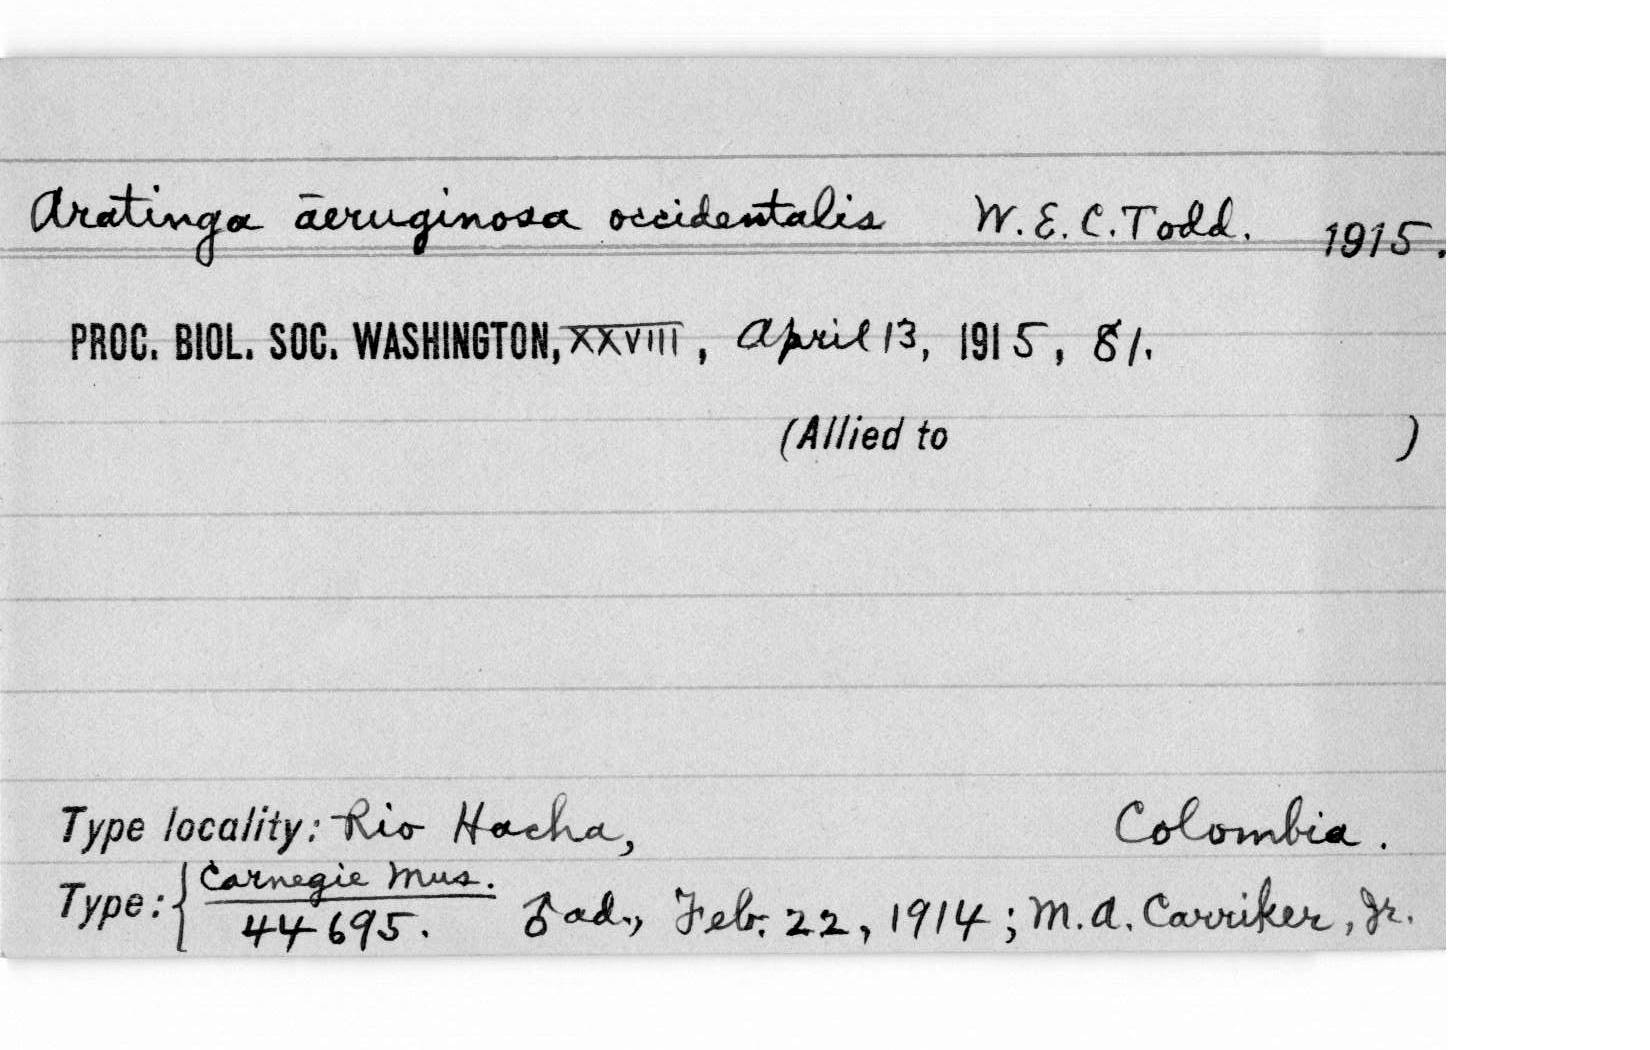 Aratinga āeruginosa occidentalis W.E.C.Todd. 1915.
PROC. BIOL. SOC. WASHINGTON, XXVIII, April 13, 1915, 81.
(Allied to )
Type locality: Rio Hacha, Colombia.
Type: { Carnegie Mus.
44695. ♂ ad., Feb. 22, 1914; M.A. Carriker, Jr.